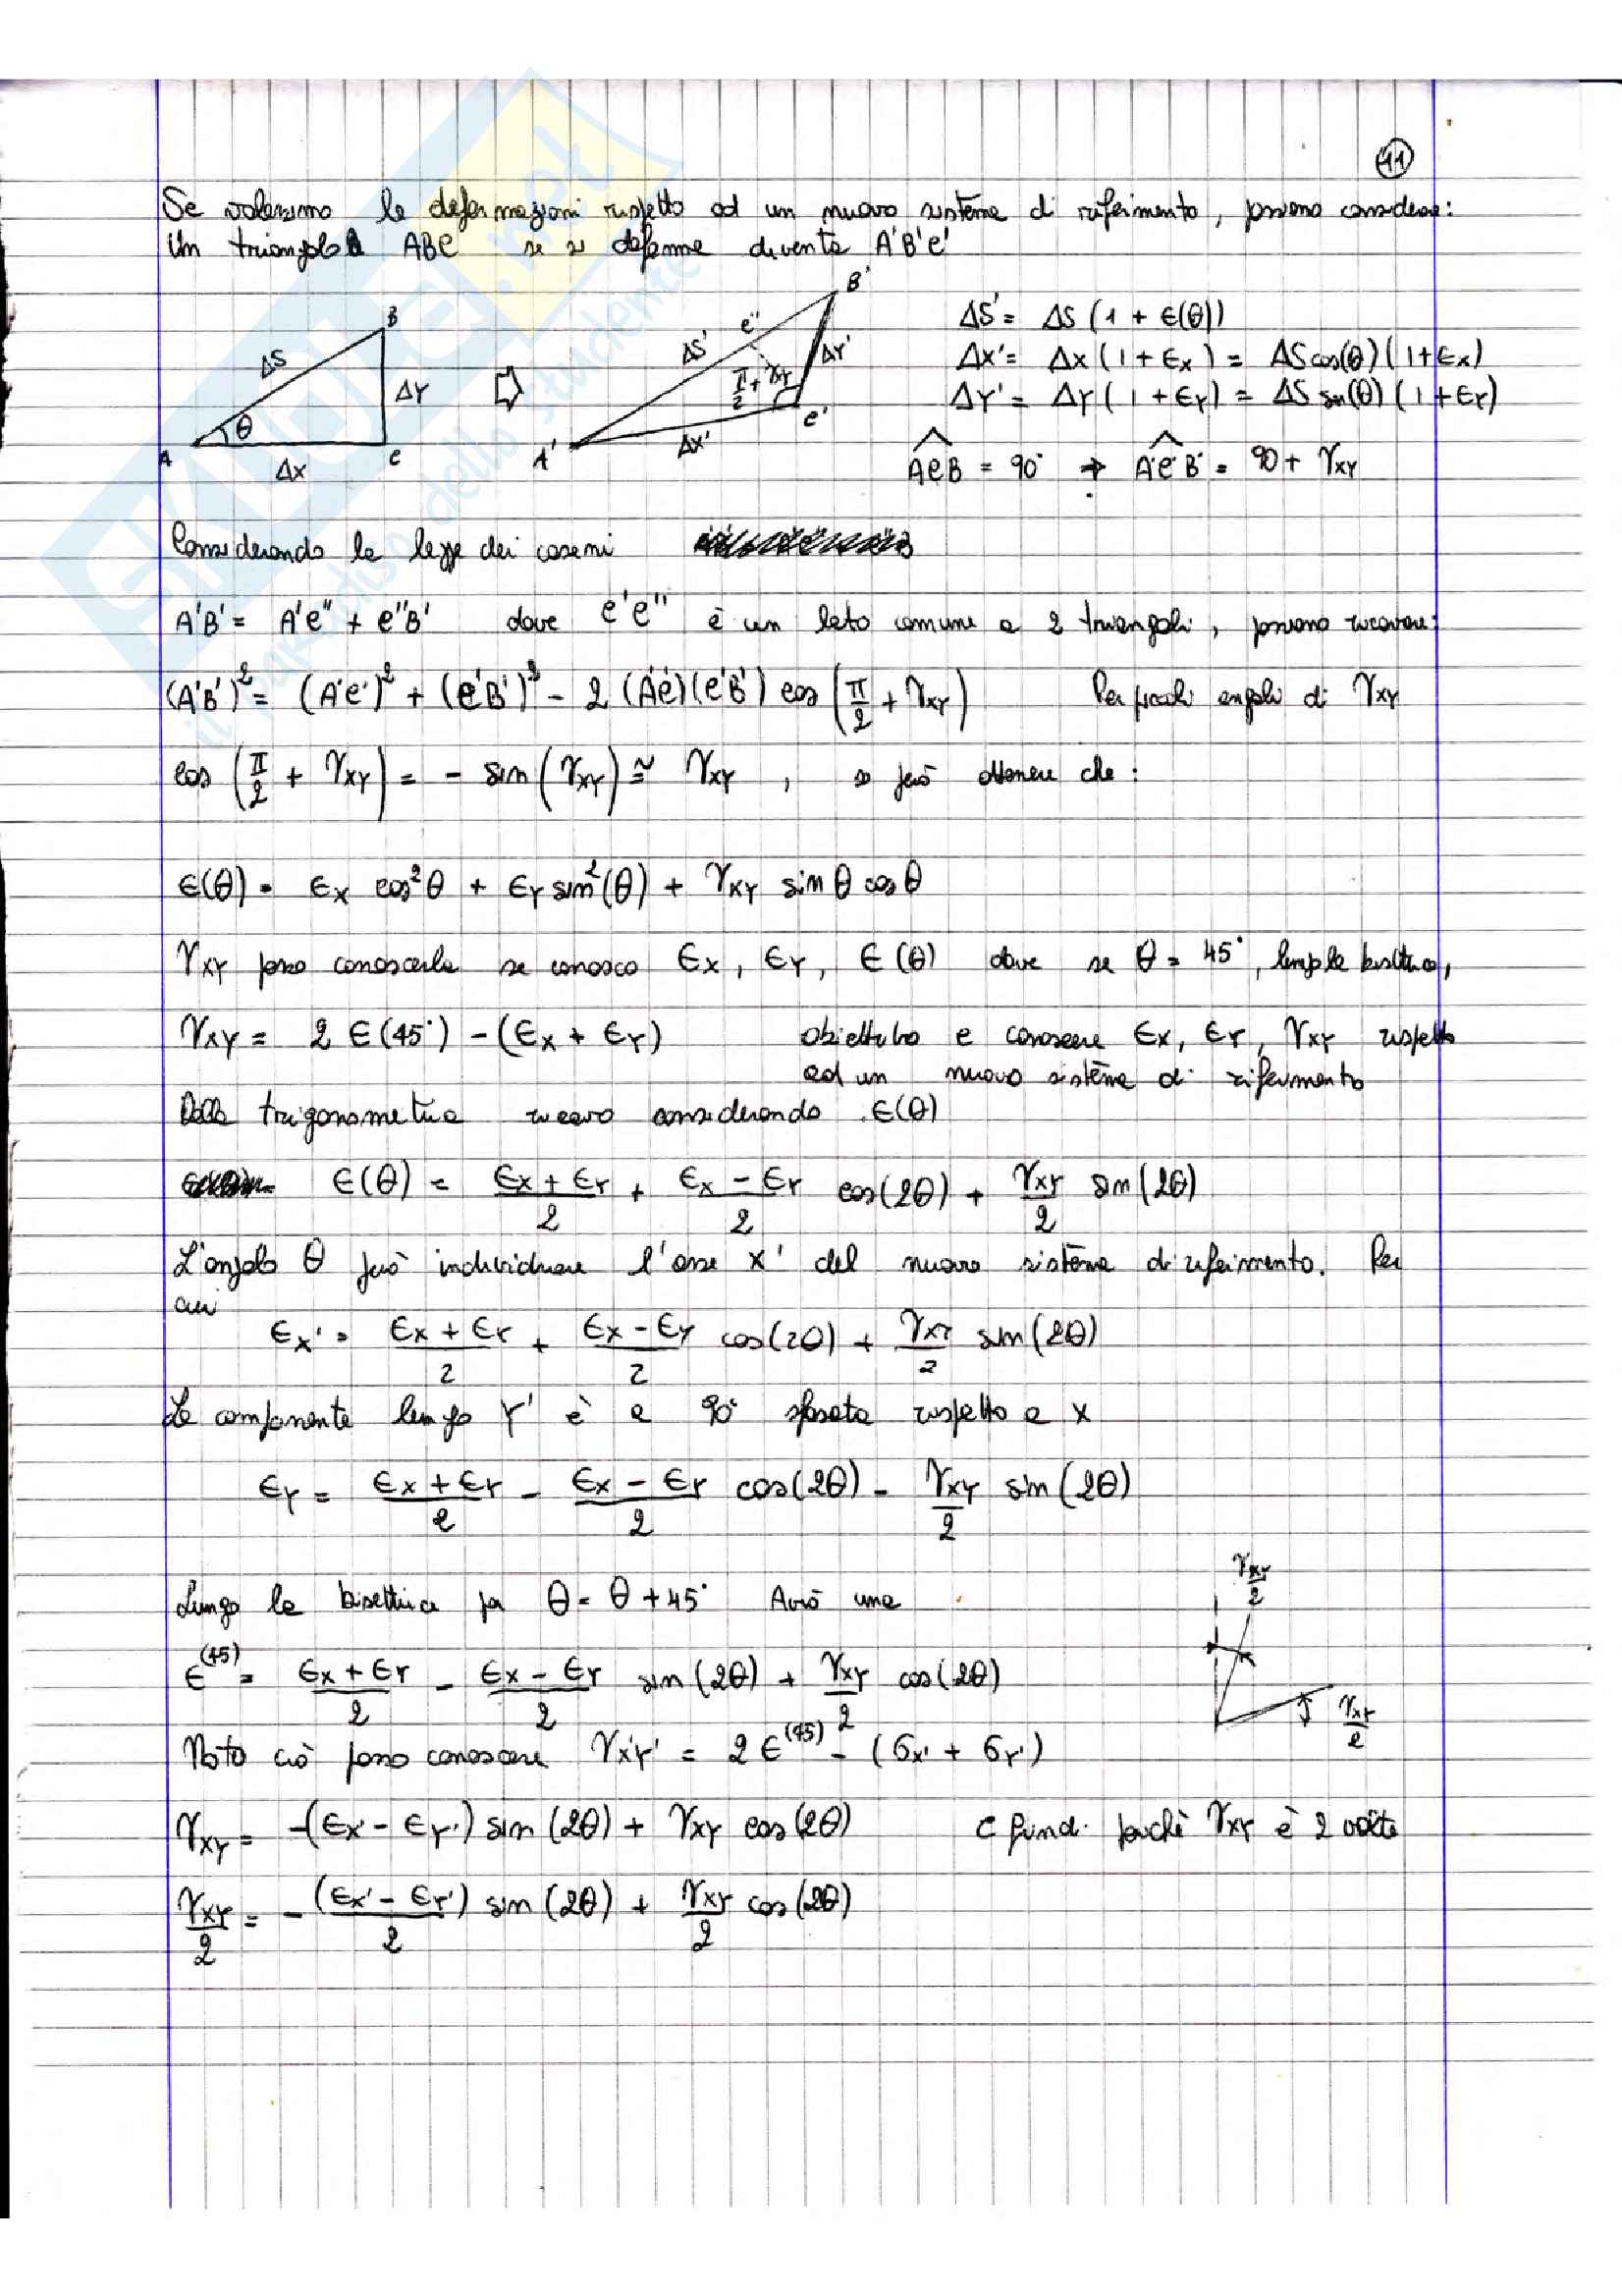 11
Se volessimo le deformazioni rispetto ad un nuovo sistema di riferimento, possono considerare:
Un triangolo ABC se si deforma diventa A'B'C'
A
B
C
ΔS
Δx
ΔY
θ
A'
B'
C'
C''
ΔS'
Δx'
ΔY'
π/2 + γxy
ΔS' = ΔS (1 + ϵ(θ))
Δx' = Δx (1 + ϵx) = ΔS cos(θ) (1+ϵx)
ΔY' = ΔY (1 + ϵY) = ΔS sin(θ) (1+ϵY)
ACB = 90° → A'C'B' = 90 + γxY
Considerando la legge dei coseni
A'B' = A'C'' + C''B' dove C'C'' è un lato comune a 2 triangoli, possono ricavare:
(A'B')² = (A'C')² + (C'B')² - 2 (A'C')(C'B') cos (π/2 + γxY) Per piccoli angoli di γxY
cos (π/2 + γxY) = - sin (γxY) ≅ γxY , si può ottenere che:
ϵ(θ) = ϵx cos²θ + ϵY sin²(θ) + γxY sin θ cos θ
γxY posso conoscerla se conosco ϵx, ϵY, ϵ(θ) dove se θ = 45°, lungo la bisettrice,
γxY = 2 ϵ(45°) - (ϵx + ϵY) obiettivo è conoscere ϵx, ϵY, γxY rispetto
ad un nuovo sistema di riferimento
Dalla trigonometria ricavo considerando ϵ(θ)
ϵ(θ) = (ϵx + ϵY)/2 + (ϵx - ϵY)/2 cos(2θ) + γxY/2 sin(2θ)
L'angolo θ può individuare l'asse x' del nuovo sistema di riferimento. Per
cui
ϵx' = (ϵx + ϵY)/2 + (ϵx - ϵY)/2 cos(2θ) + γxY/2 sin(2θ)
La componente lungo Y' è a 90° sfasata rispetto a x
ϵY = (ϵx + ϵY)/2 - (ϵx - ϵY)/2 cos(2θ) - γxY/2 sin(2θ)
γxY/2
Lungo la bisettrice per θ = θ + 45° Avrò una
ϵ⁽⁴⁵⁾ = (ϵx + ϵY)/2 - (ϵx - ϵY)/2 sin(2θ) + γxY/2 cos(2θ)
γxY/2
Noto ciò posso conoscere γx'Y' = 2ϵ⁽⁴⁵⁾ - (σx' + σY')
γxY = -(ϵx' - ϵY') sin(2θ) + γxY cos(2θ) è fund. poichè γxY è 2 volte
γxY/2 = - (ϵx' - ϵY')/2 sin(2θ) + γxY/2 cos(2θ)
SKUOLA.net
il paradiso dello studente